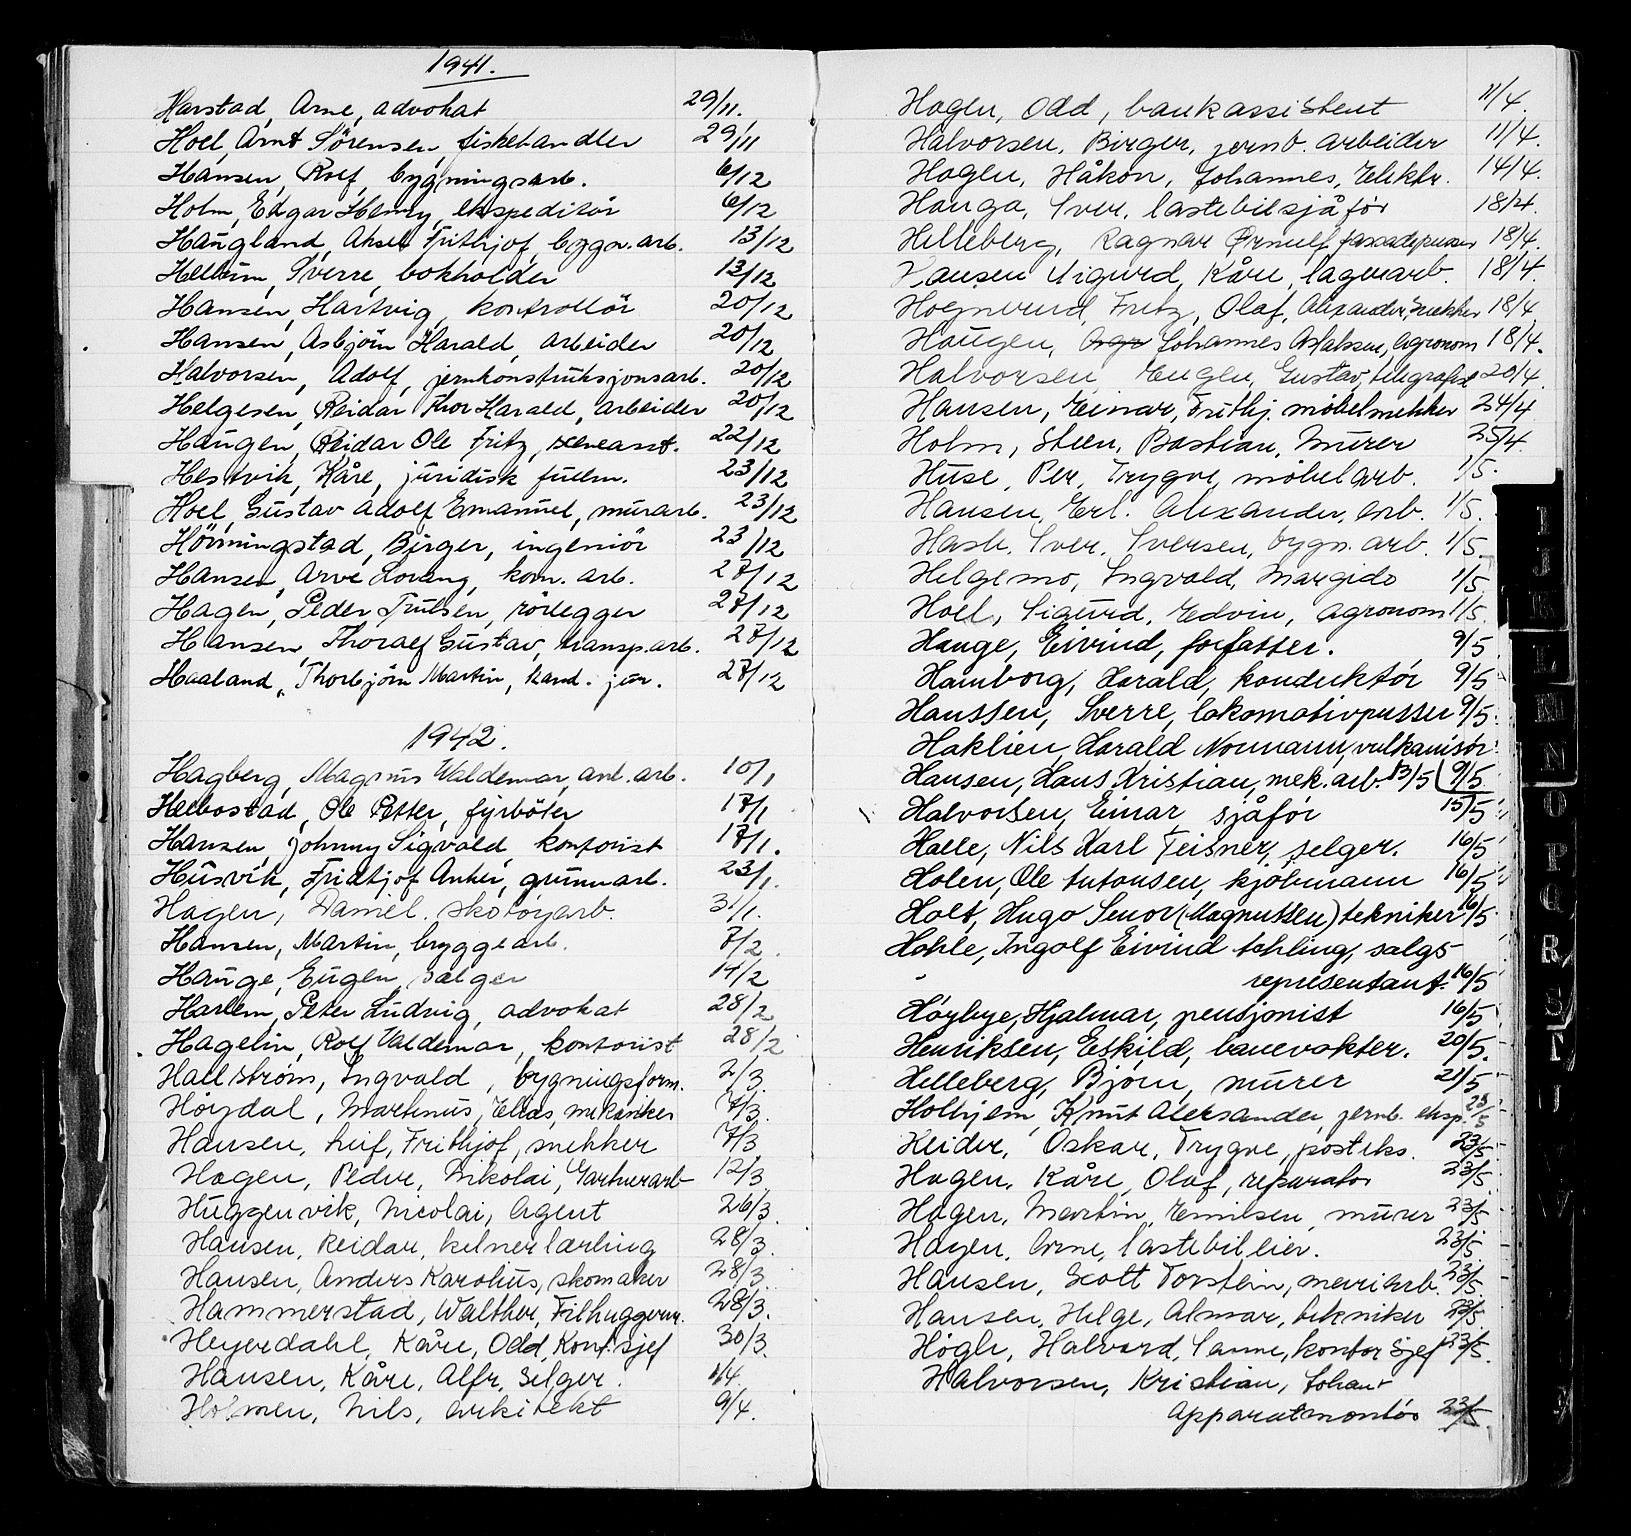 1941.
Harstad, Arne, advokat 29/11.
Hoel, Arnt Sörensen, fiskehandler 29/11
Hansen, Rolf, bygningsarb. 6/12
Holm, Edgar Henry, ekspeditör 6/12
Haugland, Aksel Frithjof, bygn. arb. 13/12
Hellum, Sverre, bokholder 13/12
Hansen, Hartvig, kontrollör 20/12
Hansen, Asbjörn Harald, arbeider 20/12
Halvorsen, Adolf, jernkonstruksjonsarb. 20/12
Helgesen, Reidar Thor Harald, arbeider 20/12
Haugen, Reidar Ole Fritz, 22/12
Hestvik, Kåre, juridisk fullm. 23/12
Hoel, Gustav Adolf Emanuel, murarb. 23/12
Hönningstad, Birger, ingeniör 23/12
Hansen, Arve Lorang, kom. arb. 27/12
Hagen, Peder Trulsen, rörlegger 27/12
Hansen, Thoralf Gustav, transp.arb. 27/12
Haaland, Thorbjörn Martin, kand. jur. 27/12
1942.
Hagberg, Magnus Waldemar, anl. arb. 10/1
Helbostad, Ole Petter, fyrböter 17/1
Hansen Johnny Sigvald kontorist 17/1.
Husvik, Fridtjof Anker, grunnarb. 23/1.
Hagen, Daniel. skotöyarb. 31/1.
Hansen, Martin, bryggearb. 7/2
Hauge, Eugen, selger 14/2
Harlem, Peter Ludvig, advokat 28/2
Hagelin, Rolf Valdemar, kontorist 28/2
Hallström, Ingvald, bygningsform. 2/3
Höydal, Martinus, Elias, mekaniker 7/3.
Hansen, Leif, Frithjof, snekker 7/3
Hagen, Peder, Nikolai, Gartnerarb 12/3
Huggenvik, Nicolai, Agent 26/3
Hansen, Reidar, kelnerlærling 28/3.
Hansen, Anders Karolius, skomaker 28/3
Hammerstad, Walther, Filhugger 28/3.
Heyerdahl, Kåre, Odd, Kont.sjef 30/3.
Hansen, Kåre, Alfr. Selger. 1/4.
Holmen, Nils, Arkitekt 9/4.
Hagen, Odd, bankassistent 11/4.
Halvorsen, Birger, jernb. arbeider 11/4.
Hagen, Håkon, Johannes, Elektr. 14/4.
Hauga, Iver, lastebilsjåför 18/4.
Helleberg, Ragnar Ørnulf fassadepusser 18/4.
Hansen Sigurd, Kåre, lagerarb. 18/4.
Hognerud, Fritz, Olaf, Alexander, Snekker 18/4.
Haugen, Johannes Aslaksen, Agronom 18/4.
Halvorsen Eugen, Gustav, telegrafist 20/4.
Hansen, Einar, Frithj. möbelsnekker 24/4
Holm, Steen, Bastian, Murer 25/4.
Huse, Per, Trygve, möbelarb. 1/5.
Hansen, Erl. Alexander, Arb. 1/5.
Hasle, Iver, Iversen, bygn. arb. 1/5.
Helgemo, Ingvald, Margido 1/5
Hoel, Sigurd, Edvin, Agronom 1/5.
Hauge, Eivind, forfatter. 9/5.
Hamborg, Harald, konduktör 9/5
Hanssen, Sverre, lokomotivpusser 9/5.
Haklien, Harald Normann, vulkanisör
Hansen, Hans Kristian, mek. arb. 13/5 (9/5
Halvorsen, Einar sjåför 15/5
Halle, Nils Karl Teisner, selger. 16/5
Holen, Ole Antonsen, kjöbmann 16/5
Holt, Hugo Senor (Magnussen) tekniker 16/5.
Hohle, Ingolf Eivind Hohling, salgs-
representant. 16/5
Höybye, Hjalmar, pensjonist 16/5
Henriksen, Eskild, banevokter. 20/5.
Helleberg, Björn, murer 21/5
Holhjem, Knut Aleksander, jernb. eksp. 23/5
Heider, Oskar, Trygve, posteks. 23/5
Hagen, Kåre, Olaf, reparatör 23/5.
Hagen, Martin, Emilsen, murer 23/5
Hagen, Arne, lastebileier. 23/5.
Hansen, Scott Torstein, meieriarb. 23/5.
Hansen, Helge, Almar, tekniker 23/5.
Högli, Halvard, Sanne, kontorsjef 23/5.
Halvorsen, Kristian, Johan
Apparatmontör 23/5.
I
J
K
L
M
N
O
P
Q
R
S
T
U
V
W